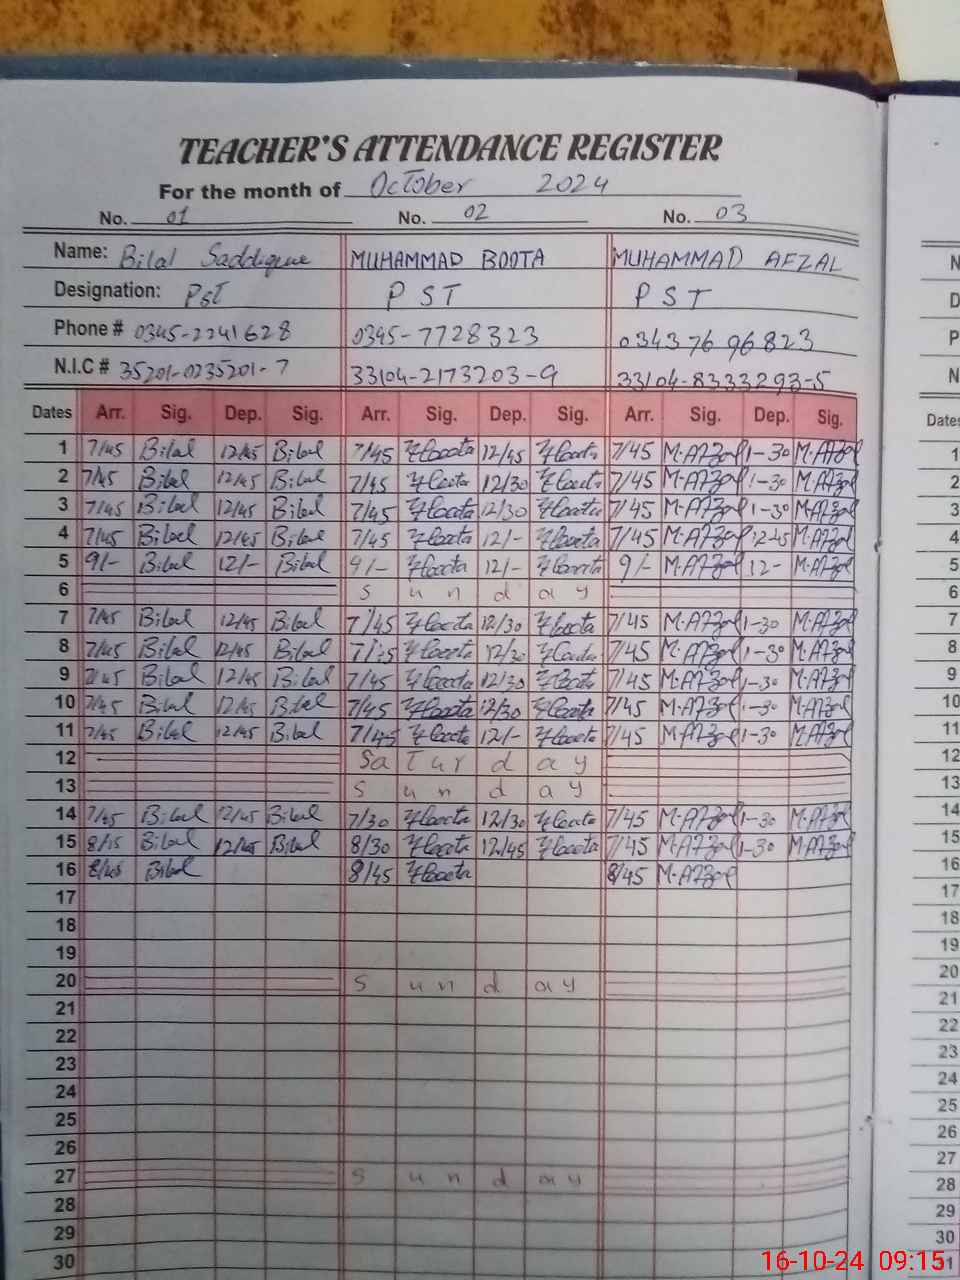 TEACHER'S ATTENDANCE REGISTER
For the month of October 2024
No. 01 No. 02 No. 03
Name: Bilal Saddique MUHAMMAD BOOTA MUHAMMAD AFZAL
Designation: PST PST PST
Phone # 0345-2241628 0345-7728323 0343 76 96 823
N.I.C # 35201-0235201-7 33104-2173203-9 33104-8333293-5
Dates Arr. Sig. Dep. Sig. Arr. Sig. Dep. Sig. Arr. Sig. Dep. Sig. Dates
1 7/45 Bilal 12/45 Bilal 7/45 Yboota 12/45 Yboota 7/45 M.AFzal 1-30 M.AFzal 1
2 7/45 Bilal 12/45 Bilal 7/45 Yboota 12/30 Yboota 7/45 M.AFzal 1-30 M.AFzal 2
3 7/45 Bilal 12/45 Bilal 7/45 Yboota 12/30 Yboota 7/45 M.AFzal 1-30 M.AFzal 3
4 7/45 Bilal 12/45 Bilal 7/45 Yboota 12/- Yboota 7/45 M.AFzal 12-45 M.AFzal 4
5 9/- Bilal 12/- Bilal 9/- Yboota 12/- Yboota 9/- M.AFzal 12- M.AFzal 5
6 Sunday 6
7 7/45 Bilal 12/45 Bilal 7/45 Yboota 12/30 Yboota 7/45 M.AFzal 1-30 M.AFzal 7
8 7/45 Bilal 12/45 Bilal 7/45 Yboota 12/30 Yboota 7/45 M.AFzal 1-30 M.AFzal 8
9 7/45 Bilal 12/45 Bilal 7/45 Yboota 12/30 Yboota 7/45 M.AFzal 1-30 M.AFzal 9
10 7/45 Bilal 12/45 Bilal 7/45 Yboota 12/30 Yboota 7/45 M.AFzal 1-30 M.AFzal 10
11 7/45 Bilal 12/45 Bilal 7/45 Yboota 12/- Yboota 7/45 M.AFzal 1-30 M.AFzal 11
12 Saturday 12
13 Sunday 13
14 7/45 Bilal 12/45 Bilal 7/30 Yboota 12/30 Yboota 7/45 M.AFzal 1-30 M.AFzal 14
15 8/15 Bilal 12/45 Bilal 8/30 Yboota 12/45 Yboota 7/45 M.AFzal 1-30 M.AFzal 15
16 8/45 Bilal 8/45 Yboota 8/45 M.AFzal 16
17 17
18 18
19 19
20 Sunday 20
21 21
22 22
23 23
24 24
25 25
26 26
27 Sunday 27
28 28
29 29
30 30
31
16-10-24 09:15